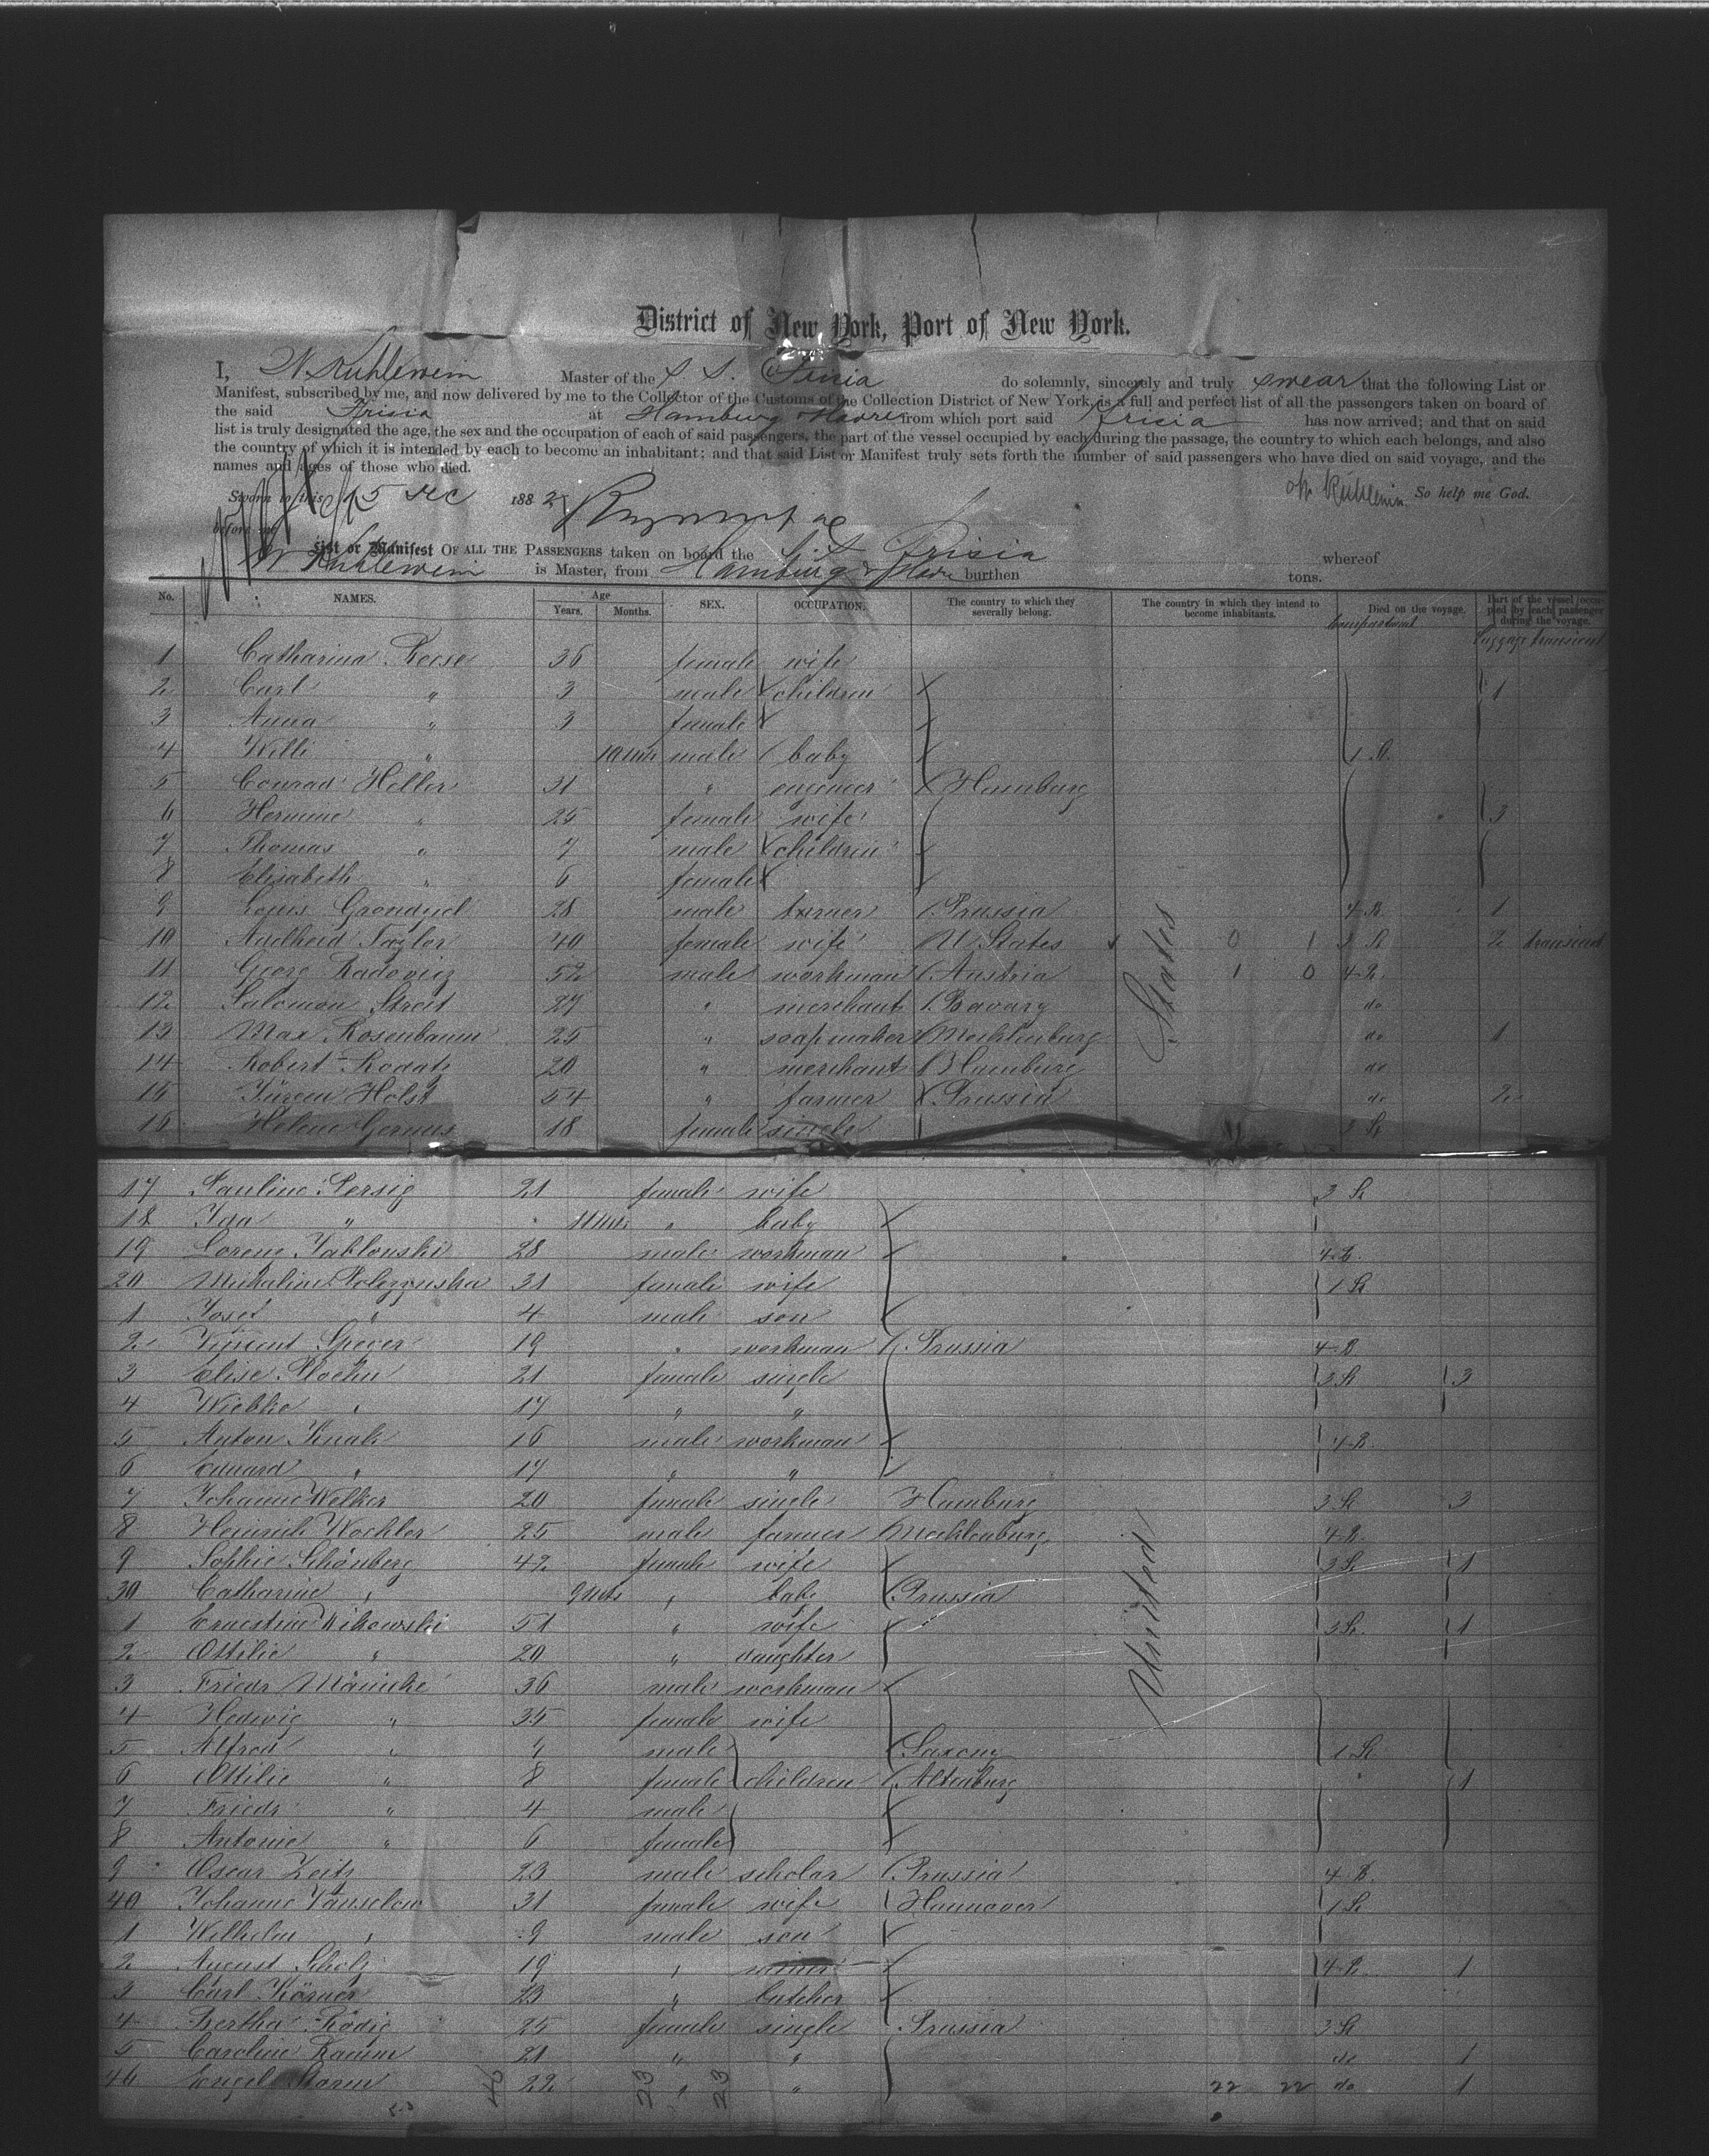 District of New York, Port of New York.
I, W. Kuhlewein Master of the S. S. Frisia do solemnly, sincerely and truly swear that the following List or
Manifest, subscribed by me, and now delivered by me to the Collector of the Customs of the Collection District of New York, is a full and perfect list of all the passengers taken on board of
the said Frisia at Hamburg & Havre from which port said Frisia has now arrived; and that on said
list is truly designated the age, the sex and the occupation of each of said passengers, the part of the vessel occupied by each during the passage, the country to which each belongs, and also
the country of which it is intended by each to become an inhabitant; and that said List or Manifest truly sets forth the number of said passengers who have died on said voyage, and the
names and ages of those who died.
Sworn to this 15 Dec 1882 W. Kuhlewein So help me God.
before me
List or Manifest OF ALL THE PASSENGERS taken on board the S. S. Frisia whereof
W Kuhlewein is Master, from Hamburg & Havre burthen tons.
No. NAMES. Age Years. Months. SEX. OCCUPATION. The country to which they severally belong. The country in which they intend to become inhabitants. Died on the voyage. Part of the vessel occupied by each passenger during the voyage.
compartment luggage transient
1 Catharina Reese 36 female wife
2 Carl " 3 male children 1
3 Anna " 3 female
4 Willi " 10 mts male baby
5 Conrad Heller 31 " engineer Hamburg
6 Hermine " 25 female wife 3
7 Thomas " 7 male children
8 Elisabeth " 6 female
9 Louis 28 male turner Prussia 1
10 Adelheid Taylor 40 female wife U States 0 1 2 transient
11 Georg Radovicz 52 male workman Austria 1 0
12 Salomon Streit 27 " merchant Bavary do
13 Max Rosenbaum 25 " soapmaker Mecklenburg do 1
14 Robert 20 " merchant Hamburg do
15 Jürgen Holst 54 " farmer Prussia do 2
16 Helene 18 female single
United States
17 Pauline Persig 21 female wife
18 Ida " 11 mts " baby
19 Lorenz Jablonski 28 male workman
20 31 female wife
1 Josef " 4 male son
2 Vincent 19 " workman Prussia
3 Elise 21 female single 3
4 Wiebke " 17 " "
5 Anton 16 male workman
6 Eduard " 17 " "
7 Johanne Welker 20 female single Hamburg 3
8 Heinrich Wochler 25 male farmer Mecklenburg
9 Sophie Schönberg 42 female wife 1
30 Catharine " 9 mts " baby Prussia
1 Ernestine Wikowski 51 " wife 1
2 Ottilie " 20 " daughter
3 Friedr Mänicke 36 male workman
4 Hedwig " 35 female wife
5 Alfred " male Saxony
6 Ottilie " 8 female children Altenburg 1
7 Friedr " 4 male
8 Antonie " 6 female
9 Oscar Zeitz 23 male scholar Prussia
40 Johanne 31 female wife Hannover
1 Wilhelm " 9 male son
2 August Scholz 19 " 1
3 Carl Körner 23 " butcher
4 Bertha Rödig 25 female single Prussia
5 Caroline Ramm 21 " " do 1
46 Engel 22 " " 22 22 do 1
23 23